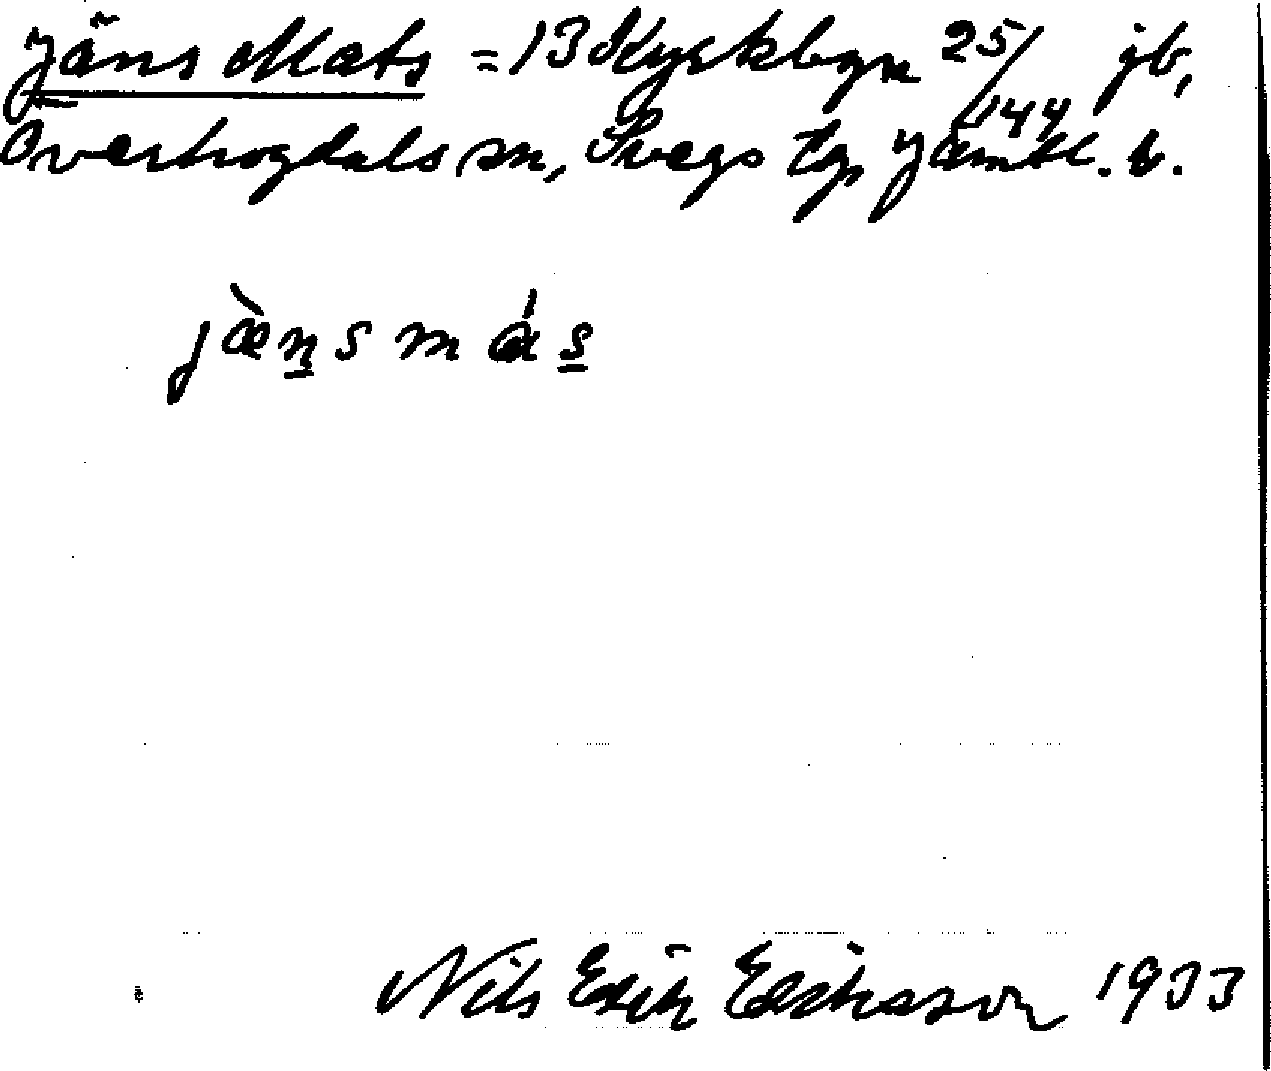 Jäns Mats = 13 Kyrkbyn 25/144 jb,
Överhogdals sn, Svegs tg, Jämtl. l.
jæ̀n̲s má s̲
Nils Erik Eriksson 1933